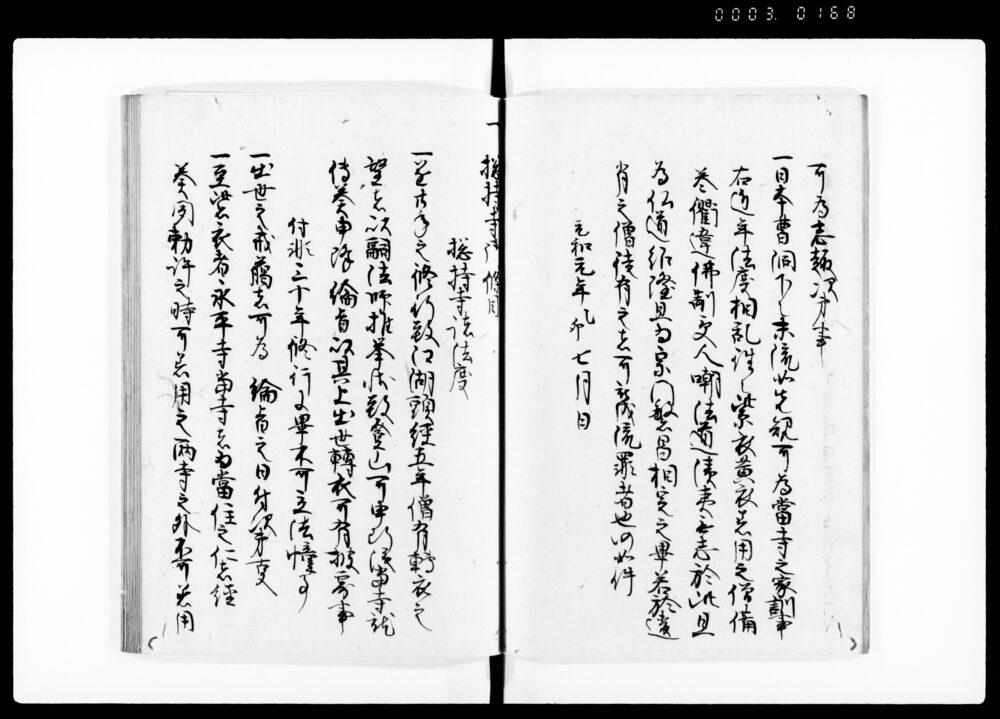 0003. 0168
可為志趣次第事
一日本曹洞下之末流如先規可為當寺之家訓事
右近年法度相乱誰々紫衣黄衣着用之僧備
参衢違佛制受人嘲法道澆季之甚於此且
為仏道紹隆且為宗門繁昌相定之畢若於違
背之僧徒有之者可被處流罪者也仍如件
元和元年乙卯七月日
一 捴持寺御條目
捴持寺諸法度
一並廿年之修行致江湖頭經五年僧有轉衣之
望者以嗣法師推挙状致登山可申断須當寺就
傳奏申降 綸旨以其上出世轉衣可有披露事
付非三十年修行了畢不可立法幢事
一出世之戒﨟者可為 綸旨之日付次第事
一至紫衣者永平寺當寺者為當住之仁者經
奏聞勅許之時可着用之両寺之外不可着用